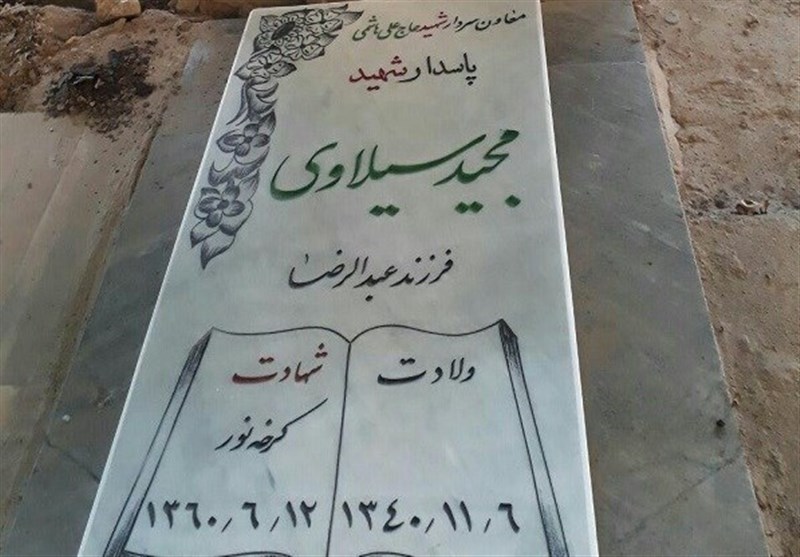 معاون سردار شهید حاج علی هاشمی
پاسدار شهید
مجید سیلاوی
فرزند عبدالرضا
ولادت
۱۳۴۰٫۱۱٫۶
شهادت
کرخه نور
۱۳۶۰٫۶٫۱۲